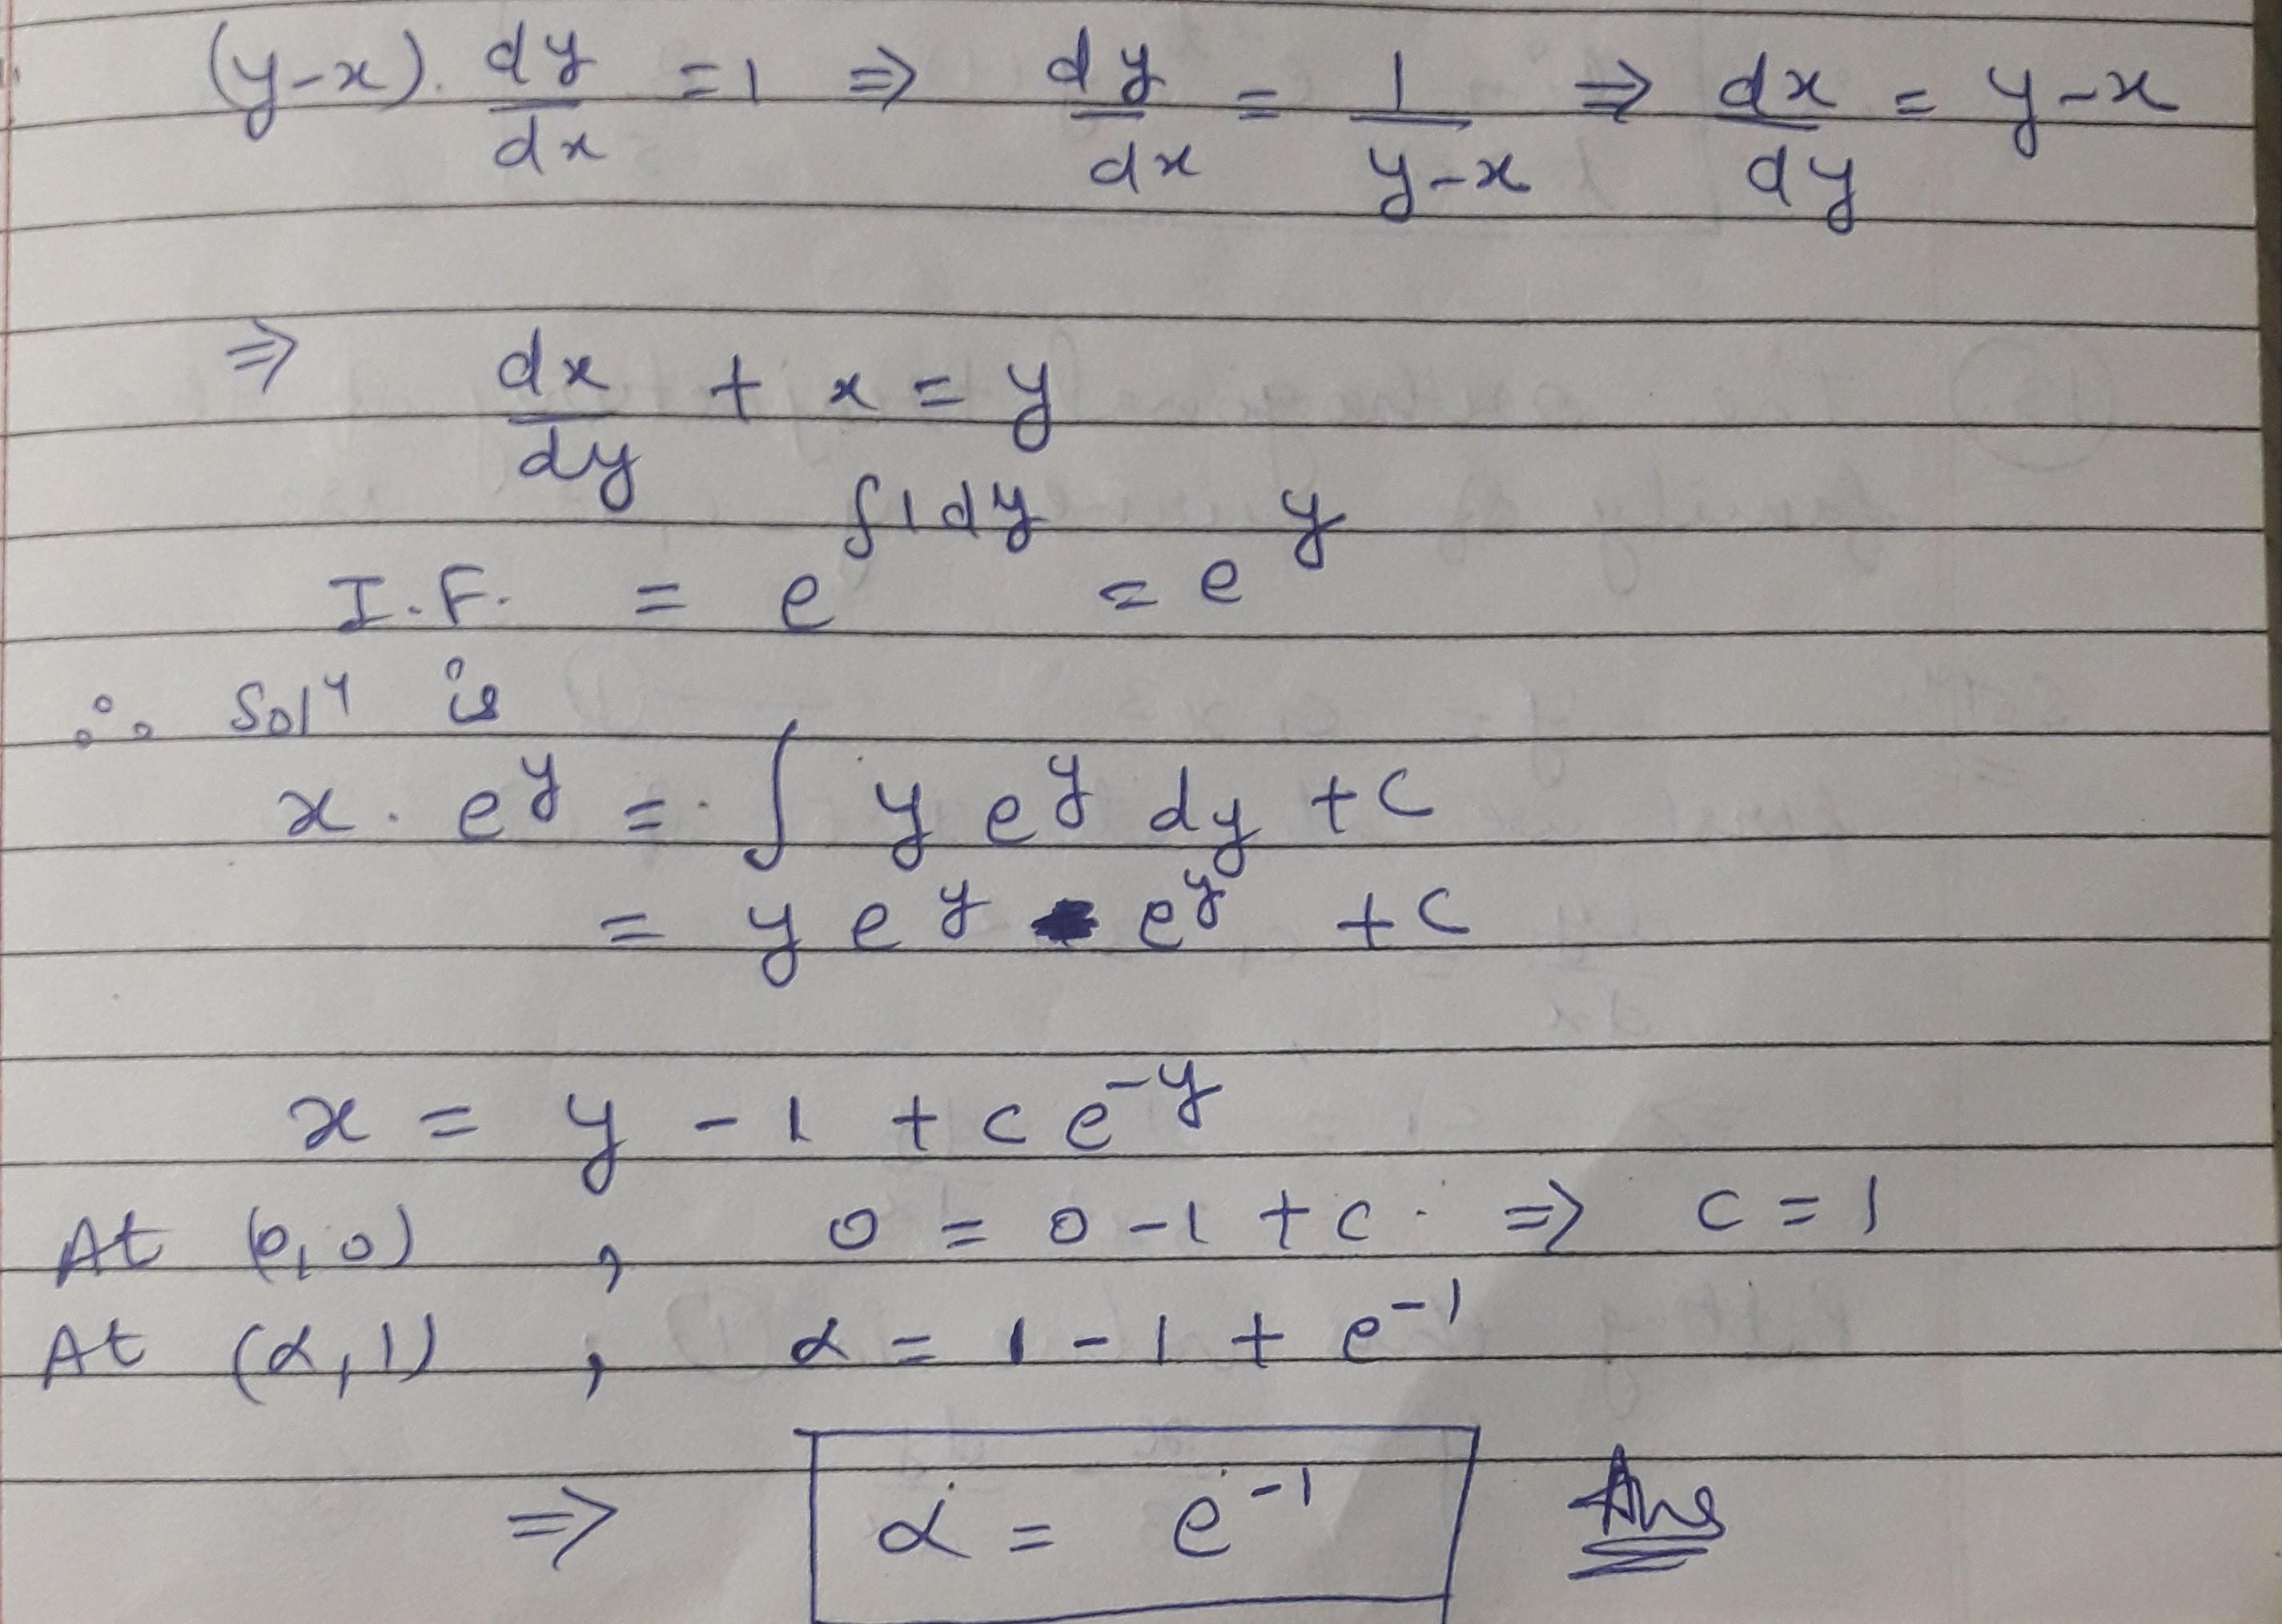 (y-x). dy/dx = 1 ⇒ dy/dx = 1/(y-x) ⇒ dx/dy = y-x
⇒ dx/dy + x = y
I.F. = e^(∫1dy) = e^y
∴ Solⁿ is
x . e^y = ∫ y e^y dy + c
= y e^y - e^y + c
x = y - 1 + c e^(-y)
At (0,0) , 0 = 0 - 1 + c . ⇒ c = 1
At (α,1) , α = 1 - 1 + e^(-1)
⇒ α = e^(-1) Ans